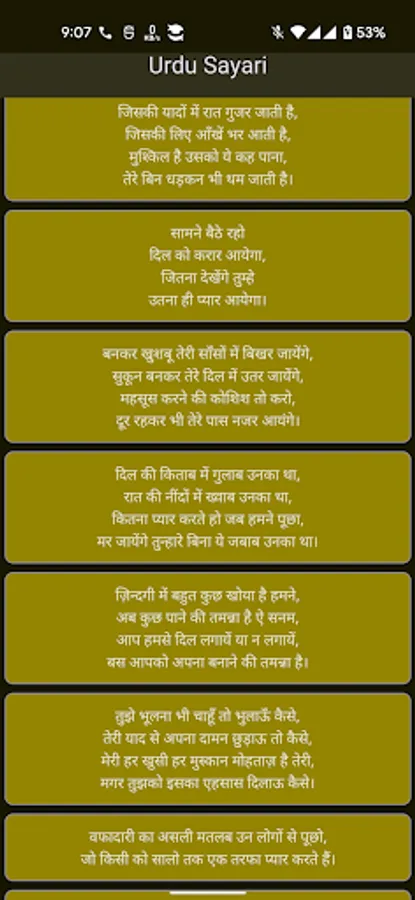 9:07
0
KB/s
53%
Urdu Sayari
जिसकी यादों में रात गुजर जाती है,
जिसकी लिए आँखें भर आती है,
मुश्किल है उसको ये कह पाना,
तेरे बिन धड़कन भी थम जाती है।
सामने बैठे रहो
दिल को करार आयेगा,
जितना देखेंगे तुम्हे
उतना ही प्यार आयेगा।
बनकर खुशबू तेरी साँसों में बिखर जायेंगे,
सुकून बनकर तेरे दिल में उतर जायेंगे,
महसूस करने की कोशिश तो करो,
दूर रहकर भी तेरे पास नजर आयंगे।
दिल की किताब में गुलाब उनका था,
रात की नींदों में ख्वाब उनका था,
कितना प्यार करते हो जब हमने पूछा,
मर जायेंगे तुन्हारे बिना ये जबाब उनका था।
ज़िन्दगी में बहुत कुछ खोया है हमने,
अब कुछ पाने की तमन्ना है ऐ सनम,
आप हमसे दिल लगायें या न लगायें,
बस आपको अपना बनाने की तमन्ना है।
तुझे भूलना भी चाहूँ तो भुलाऊँ कैसे,
तेरी याद से अपना दामन छुड़ाऊ तो कैसे,
मेरी हर खुसी हर मुस्कान मोहताज़ है तेरी,
मगर तुझको इसका एहसास दिलाऊ कैसे।
वफादारी का असली मतलब उन लोगों से पूछो,
जो किसी को सालो तक एक तरफा प्यार करते हैं।